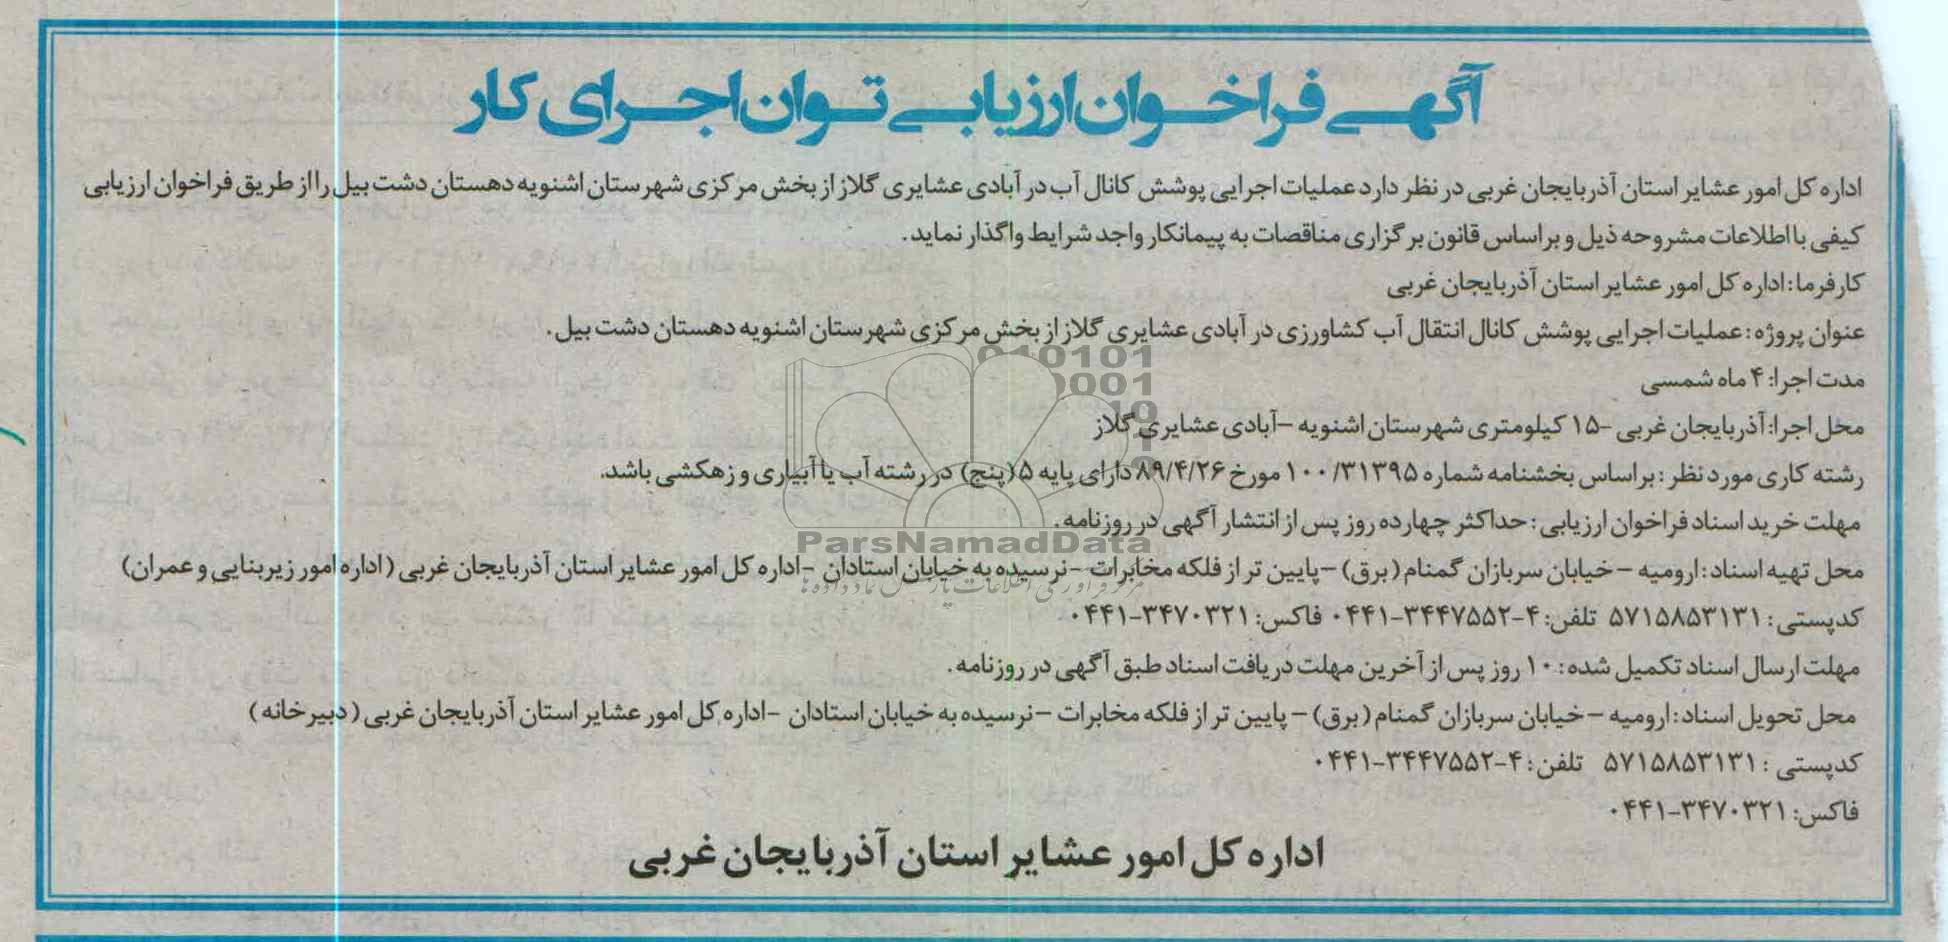 آگهی فراخوان ارزیابی توان اجرای کار
اداره کل امور عشایر استان آذربایجان غربی در نظر دارد عملیات اجرایی پوشش کانال آب در آبادی عشایری گلاز از بخش مرکزی شهرستان اشنویه دهستان دشت بیل را از طریق فراخوان ارزیابی
کیفی با اطلاعات مشروحه ذیل و براساس قانون برگزاری مناقصات به پیمانکار واجد شرایط واگذار نماید.
کارفرما: اداره کل امور عشایر استان آذربایجان غربی
عنوان پروژه: عملیات اجرایی پوشش کانال انتقال آب کشاورزی در آبادی عشایری گلاز از بخش مرکزی شهرستان اشنویه دهستان دشت بیل.
مدت اجرا: ۴ ماه شمسی
محل اجرا: آذربایجان غربی -۱۵ کیلومتری شهرستان اشنویه –آبادی عشایری گلاز
رشته کاری مورد نظر: براساس بخشنامه شماره ۱۰۰/۳۱۳۹۵ مورخ ۸۹/۴/۲۶ دارای پایه ۵ (پنج) در رشته آب یا آبیاری و زهکشی باشد.
مهلت خرید اسناد فراخوان ارزیابی: حداکثر چهارده روز پس از انتشار آگهی در روزنامه.
محل تهیه اسناد: ارومیه – خیابان سربازان گمنام (برق) –پایین تر از فلکه مخابرات –نرسیده به خیابان استادان -اداره کل امور عشایر استان آذربایجان غربی (اداره امور زیربنایی و عمران)
کدپستی: ۵۷۱۵۸۵۳۱۳۱ تلفن: ۴-۳۴۴۷۵۵۲-۰۴۴۱ فاکس: ۳۴۷۰۳۲۱-۰۴۴۱
مهلت ارسال اسناد تکمیل شده: ۱۰ روز پس از آخرین مهلت دریافت اسناد طبق آگهی در روزنامه.
محل تحویل اسناد: ارومیه – خیابان سربازان گمنام (برق) – پایین تر از فلکه مخابرات –نرسیده به خیابان استادان -اداره کل امور عشایر استان آذربایجان غربی (دبیرخانه)
کدپستی: ۵۷۱۵۸۵۳۱۳۱ تلفن: ۴-۳۴۴۷۵۵۲-۰۴۴۱
فاکس: ۳۴۷۰۳۲۱-۰۴۴۱
اداره کل امور عشایر استان آذربایجان غربی
ParsNamadData